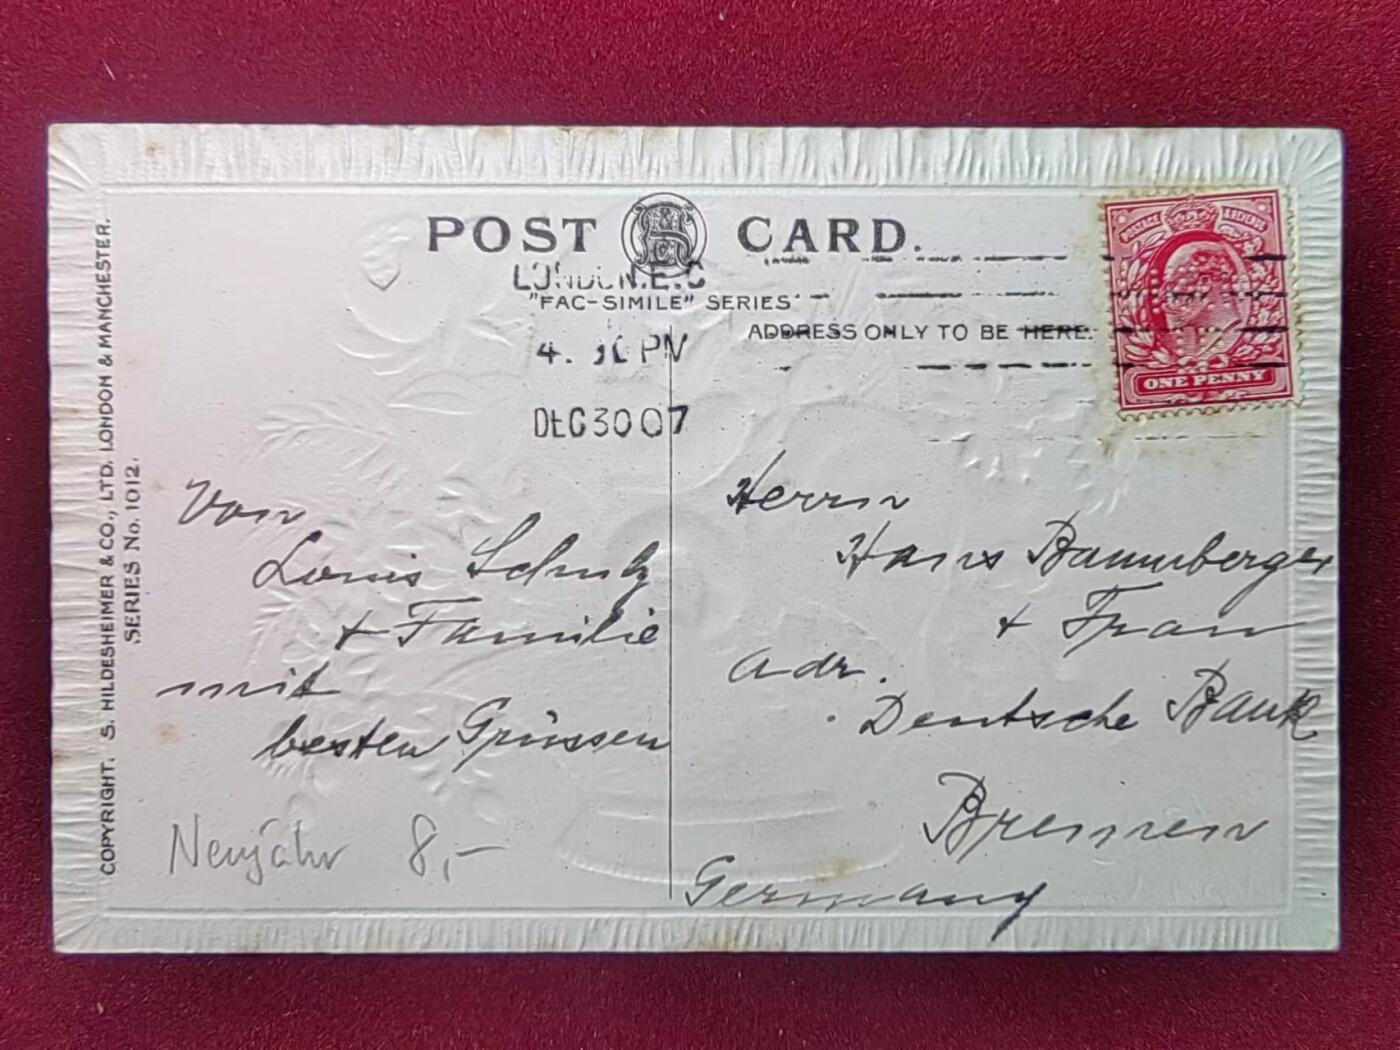 POST CARD.
LONDON.E.C
"FAC-SIMILE" SERIES
ADDRESS ONLY TO BE HERE.
4. PM
DEC 30 07
POSTAGE & REVENUE
ONE PENNY
COPYRIGHT. S. HILDESHEIMER & CO., LTD. LONDON & MANCHESTER.
SERIES No. 1012.
Von
Louis Schulz
+ Familie
mit
besten Grüssen
Neujahr 8,-
Herrn
Hans Baumberger
+ Frau
adr.
Deutsche Bank
Bremen
Germany